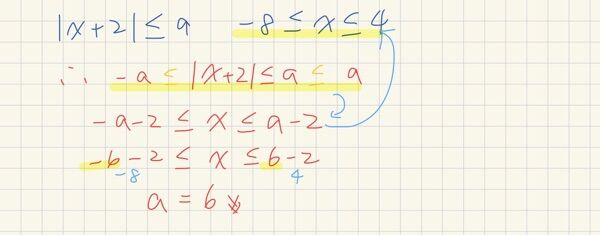 |x+2| ≤ a -8 ≤ x ≤ 4
∴ -a ≤ |x+2| ≤ a ≤ a
-a-2 ≤ x ≤ a-2
-6-2 ≤ x ≤ 6-2
-8 4
a = 6